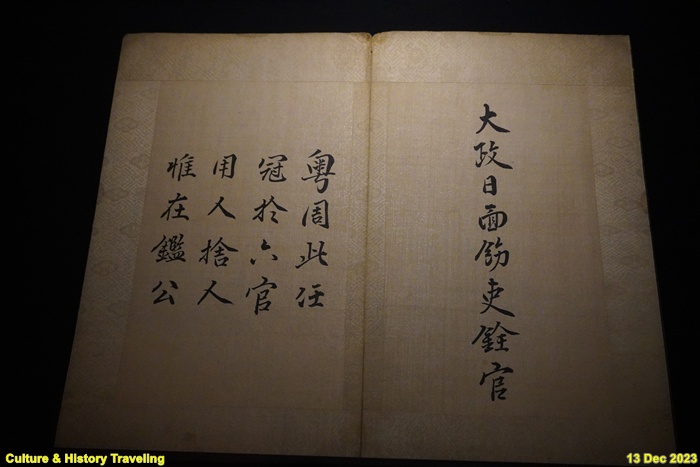 大政日面飭吏銓官
粵周此任
冠於六官
用人捨人
惟在鑑公
Culture & History Traveling
13 Dec 2023